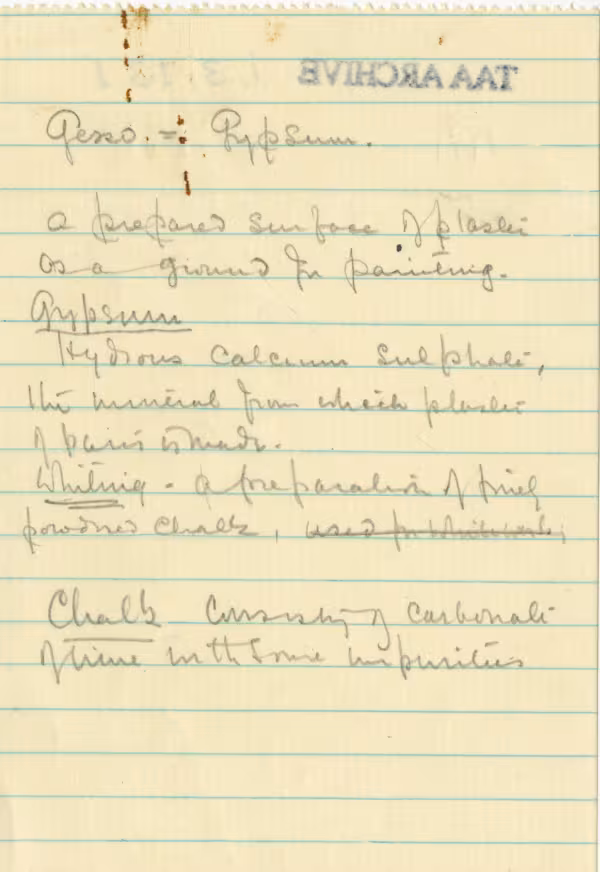 TAA ARCHIVE
Gesso. = Gypsum.
a prepared surface of plaster
as a ground for painting.
Gypsum
Hydrous calcium sulphate,
the mineral from which plaster
of paris is made.
Whiting - a preparation of finely
powdered chalk, used for whitewash,
Chalk consisting of carbonate
of lime with some impurities